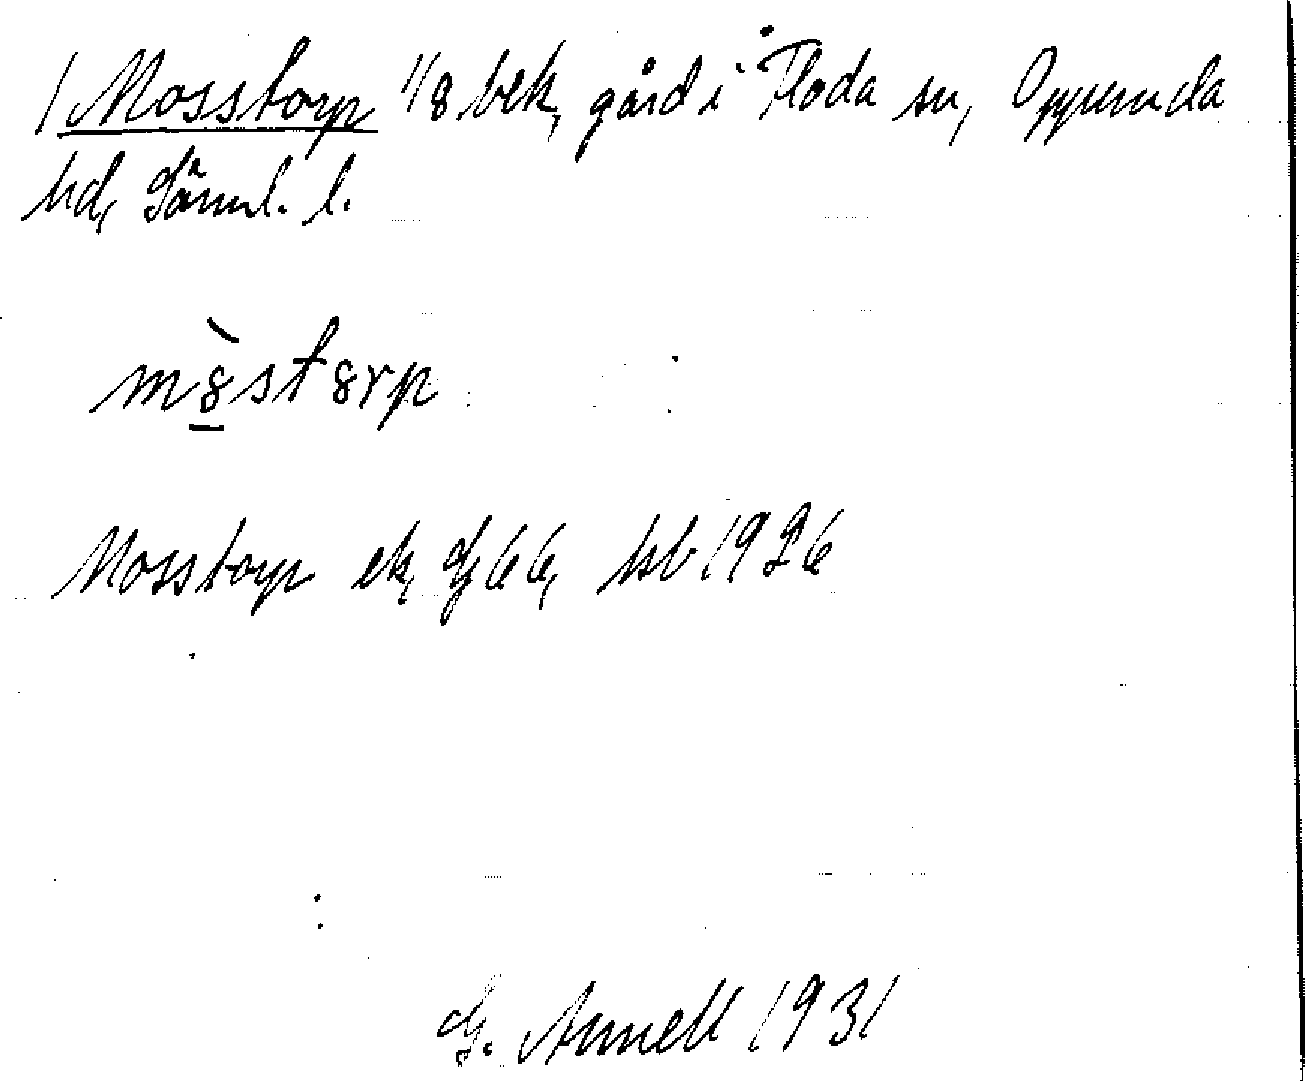 / Mosstorp 1/8 bek, gård i Floda sn, Oppunda
hd, Sörml. l.
m8̀st8rp
Mosstorp ek, Gj 66, hb 1926
G. Annell 1931